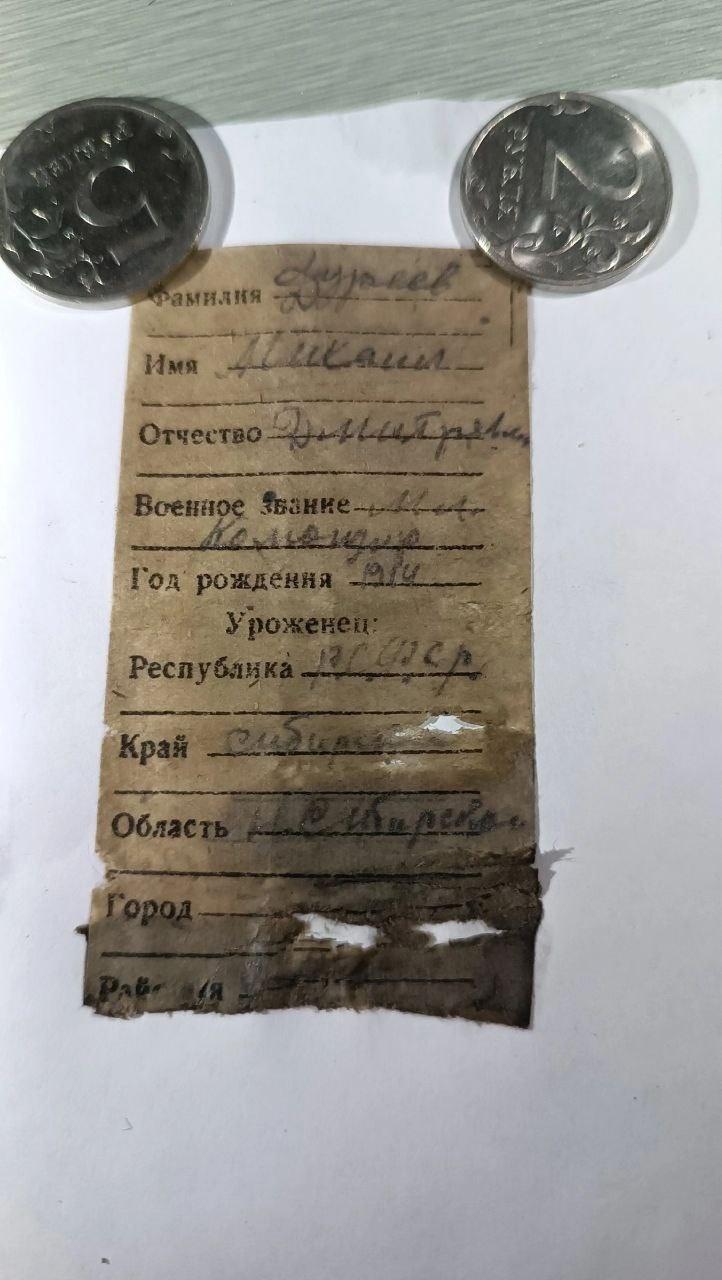 5 РУБЛЕЙ
2 РУБЛЯ
Фамилия
Имя Михаил
Отчество Дмитрявич
Военное звание Мл.
Командир
Год рождения 1914
Уроженец:
Республика РСФСР
Край Сибирский
Область Н Сибирская
Город